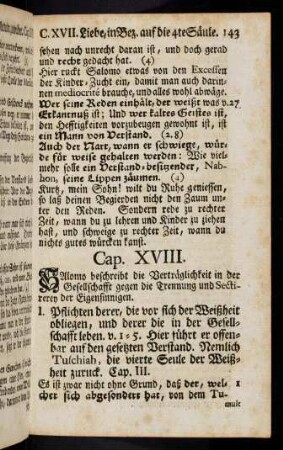 C. XVII. Liebe, in Bez. auf die 4te Säule. 143
sehen nach unrecht daran ist, und doch gerad
und recht gedacht hat. (4)
Hier ruckt Salomo etwas von den Excessen
der Kinder-Zucht ein, damit man auch darin-
nen mediocrité brauche, und alles wohl abwäge.
Wer seine Reden einhält, der weißt was v. 27
Erkantnuß ist; Und wer kaltes Geistes ist,
den Hefftigkeiten vorzubeugen gewohnt ist, ist
ein Mann von Verstand. (2. 8)
Auch der Narr, wann er schwiege, wür-
de für weise gehalten werden: Wie viel-
mehr solle ein Verstand-besitzender, Nab-
hon, seine Lippen zäumen. (2)
Kurtz, mein Sohn! wilt du Ruhe geniessen,
so laß deinen Begierden nicht den Zaum un-
ter den Reden. Sondern rede zu rechter
Zeit, wann du zu lehren und Kinder zu ziehen
hast, und schweige zu rechter Zeit, wann du
nichts gutes würcken kanst.
Cap. XVIII.
Salomo beschreibt die Verträglichkeit in der
Gesellschafft gegen die Trennung und Secti-
rerey der Eigensinnigen.
I. Pflichten derer, die vor sich der Weißheit
obliegen, und derer die in der Gesell-
schafft leben. v. 1-5. Hier führt er offen-
bar auf den gesetzten Verstand. Nemlich
Tuschiah, die vierte Seule der Weiß-
heit zuruck. Cap. III.
Es ist zwar nicht ohne Grund, daß der, wel- 1
cher sich abgesondert hat, von dem Tu-
mult